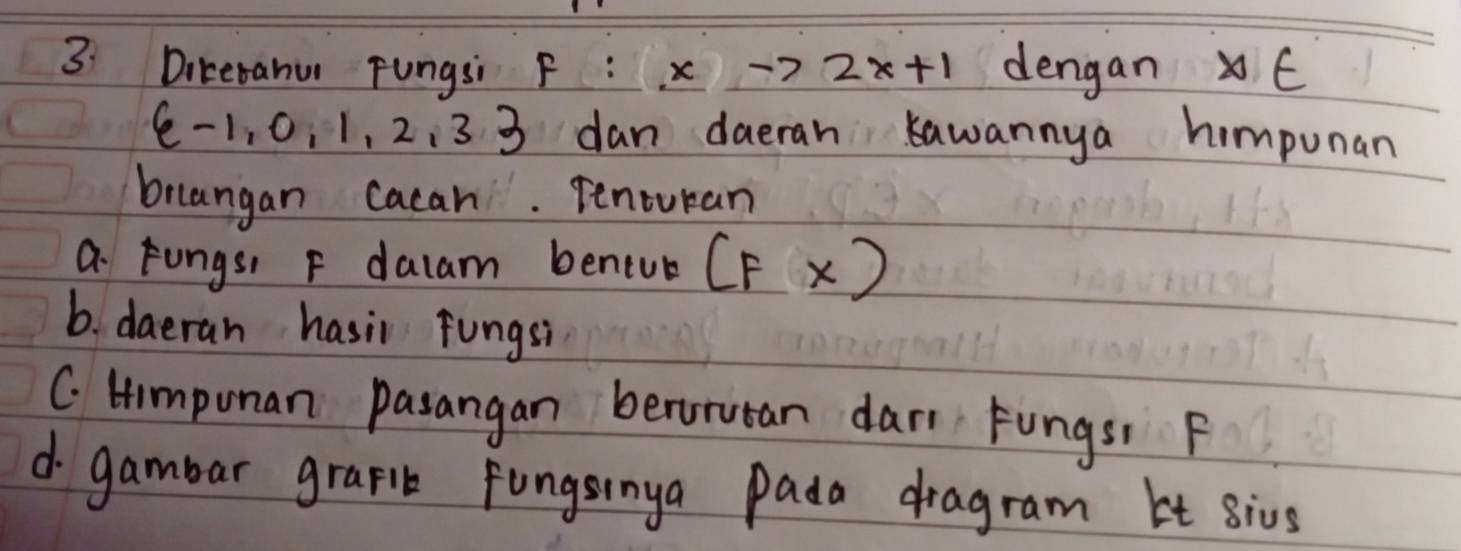 3. Diketahui Fungsi F : x -> 2x+1 dengan x ∈
{-1, 0, 1, 2, 3} dan daerah kawannya himpunan
bilangan cacah. Tentukan
a. Fungsi F dalam bentuk (F x)
b. daerah hasil fungsi
C. Himpunan pasangan berurutan dari Fungsi F
d. gambar grafik fungsinya pada diagram kt sius